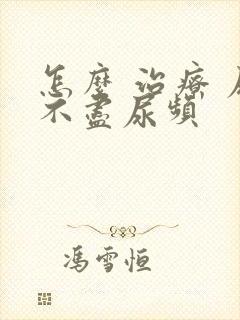 怎麼 治療
不盡尿頻
馮雪恒